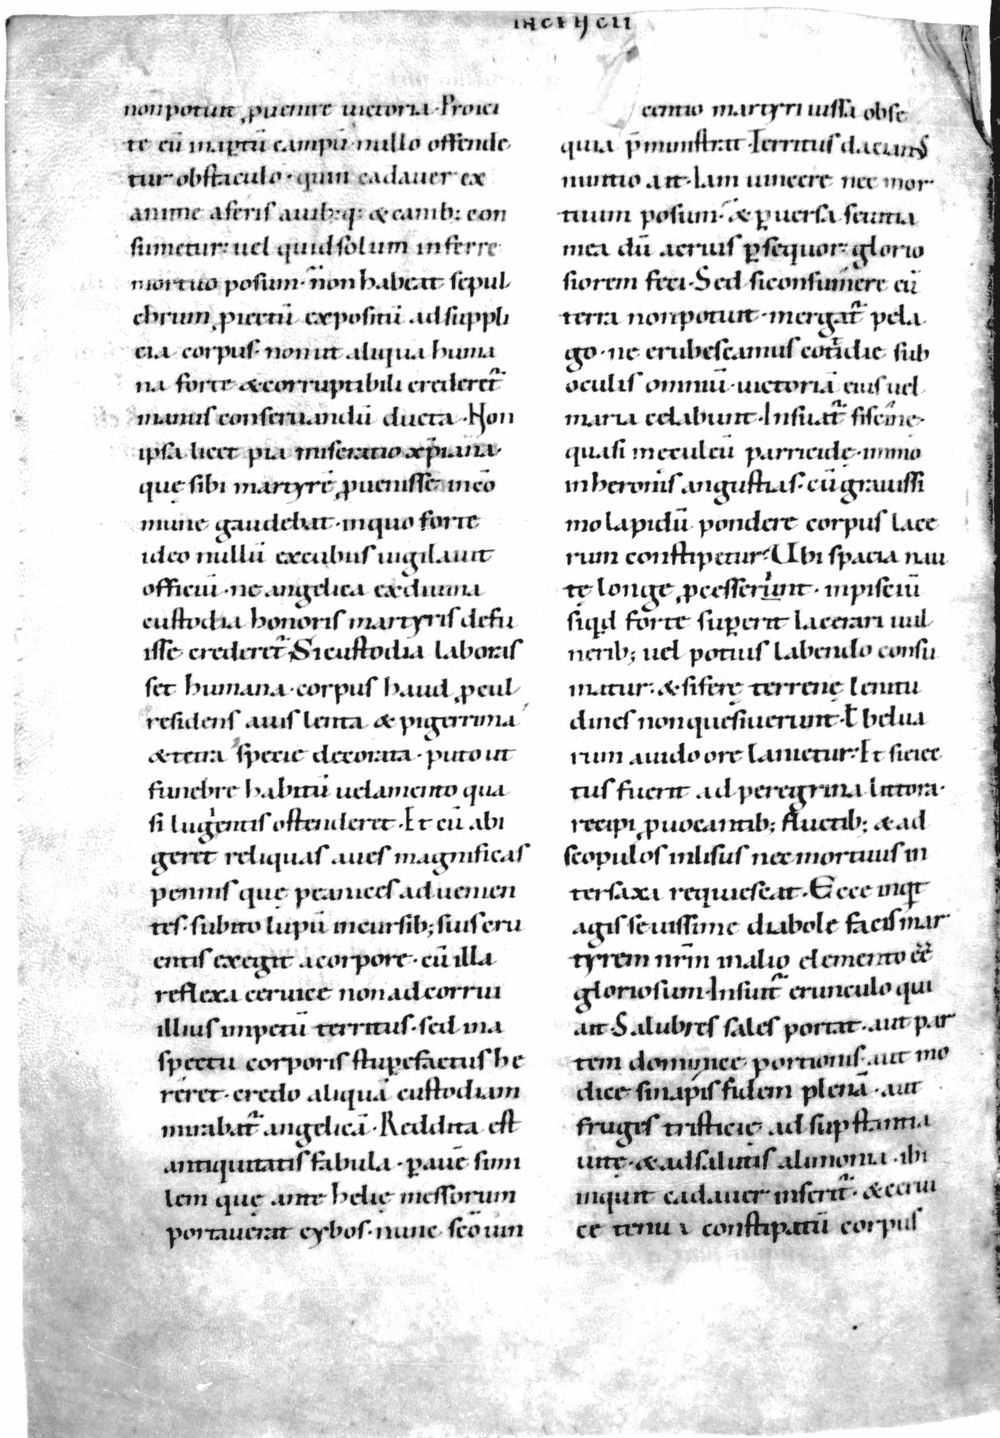 non potuit ꝓuenire uictoria · Proici
te eũ in aptũ campũ nullo offende
tur obstaculo · quin cadauer ex
anime a feris auib;q; & canib; con
sumetur: uel quid solum inferre
mortuo posum · ñon habeat sepul
chrum ꝓiectũ expositũ ad suppli
cia corpus · non ut aliqua huma
na forte & corruptibili crederet᷑
manus conseruandũ ducta · Non
ipsa licet pia miseratio xp̃iana ·
quę sibi martyrẽ ꝓuenisse in cõ
mune gaudebat · in quo forte
ideo nullũ excubus uigilauit
officiũ · ne angelica ex diuina
custodia honoris martyris defu
isse crederet᷑ · Si custodia laboris
set humana · corpus haud ꝓcul
residens auis lenta & pigerrima
& tetra specie decorata · puto ut
funebre habitũ uelamento qua
si lugentis ostenderet · Et cũ abi
geret reliquas aues magnificas
pennis quę pernices aduenien
tes · subito lupũ incursib; suis cru
entis exegit a corpore · cũ illa
reflexa ceruice non ad corrui
illius impetũ territus · sed in a
spectu corporis stupefactus he
reret · credo aliquã custodiam
mirabat᷑ angelicã · Reddita est
antiquitatis fabula · p auẽ simi
lem quę ante helię messorum
portauerat cybos · nunc sc̃o uin
centio martyri iussa obse
quia p̃ministrat · Territus dacianus
nuntio ait · Iam uincere nec mor
tuum posum · & puersa seuitia
mea dũ acrius psequor: glorio
siorem feci · Sed si consumere eũ
terra non potuit · mergat᷑ pela
go · ne erubescamus cotidie sub
oculis omniũ · uictoriã eius uel
maria celabunt · Insuat᷑ fiscine ·
quasi in culeũ parricide · immo
in heronis angustias · cũ grauissi
mo lapidũ pondere corpus lace
rum constipetur · Ubi spacia nau
tę longe ꝓcesserint · in pisciũ
siqđ forte superit lacerari uul
nerib; uel potius labendo consu
matur: & si ferę terrenę lenitu
dines non quesiuerunt · ł belua
rum auido ore lanietur: Et si eiec
tus fuerit ad peregrina littora ·
recipi ꝓuocantib; fluctib; & ad
scopulos inlisus nec mortuus in
ter saxa requiescat · Ecce inqt
agis seuissime diabole facis mar
tyrem nr̃m in alio elemento eẽ
gloriosum · Insuit᷑ erunculo qui
aut · Salubres sales portat · aut par
tem dominice portionis · aut mo
dice sinapis fidem plenã · aut
fruges tristicię ad supstantia
uitę · & ad salutis alimonia · ibi
inquit cadauer inserit᷑ · & cerui
ce tenui constipatũ corpus